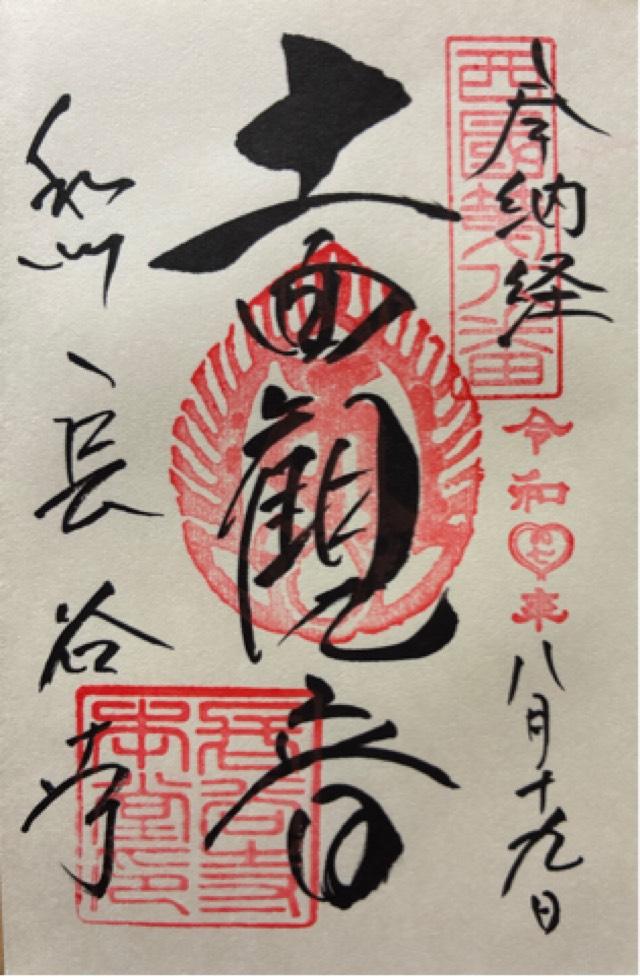 奉納経
西國第八番
令和七年
八月十九日
十一面觀音
和州 長谷寺
長谷寺
本堂印